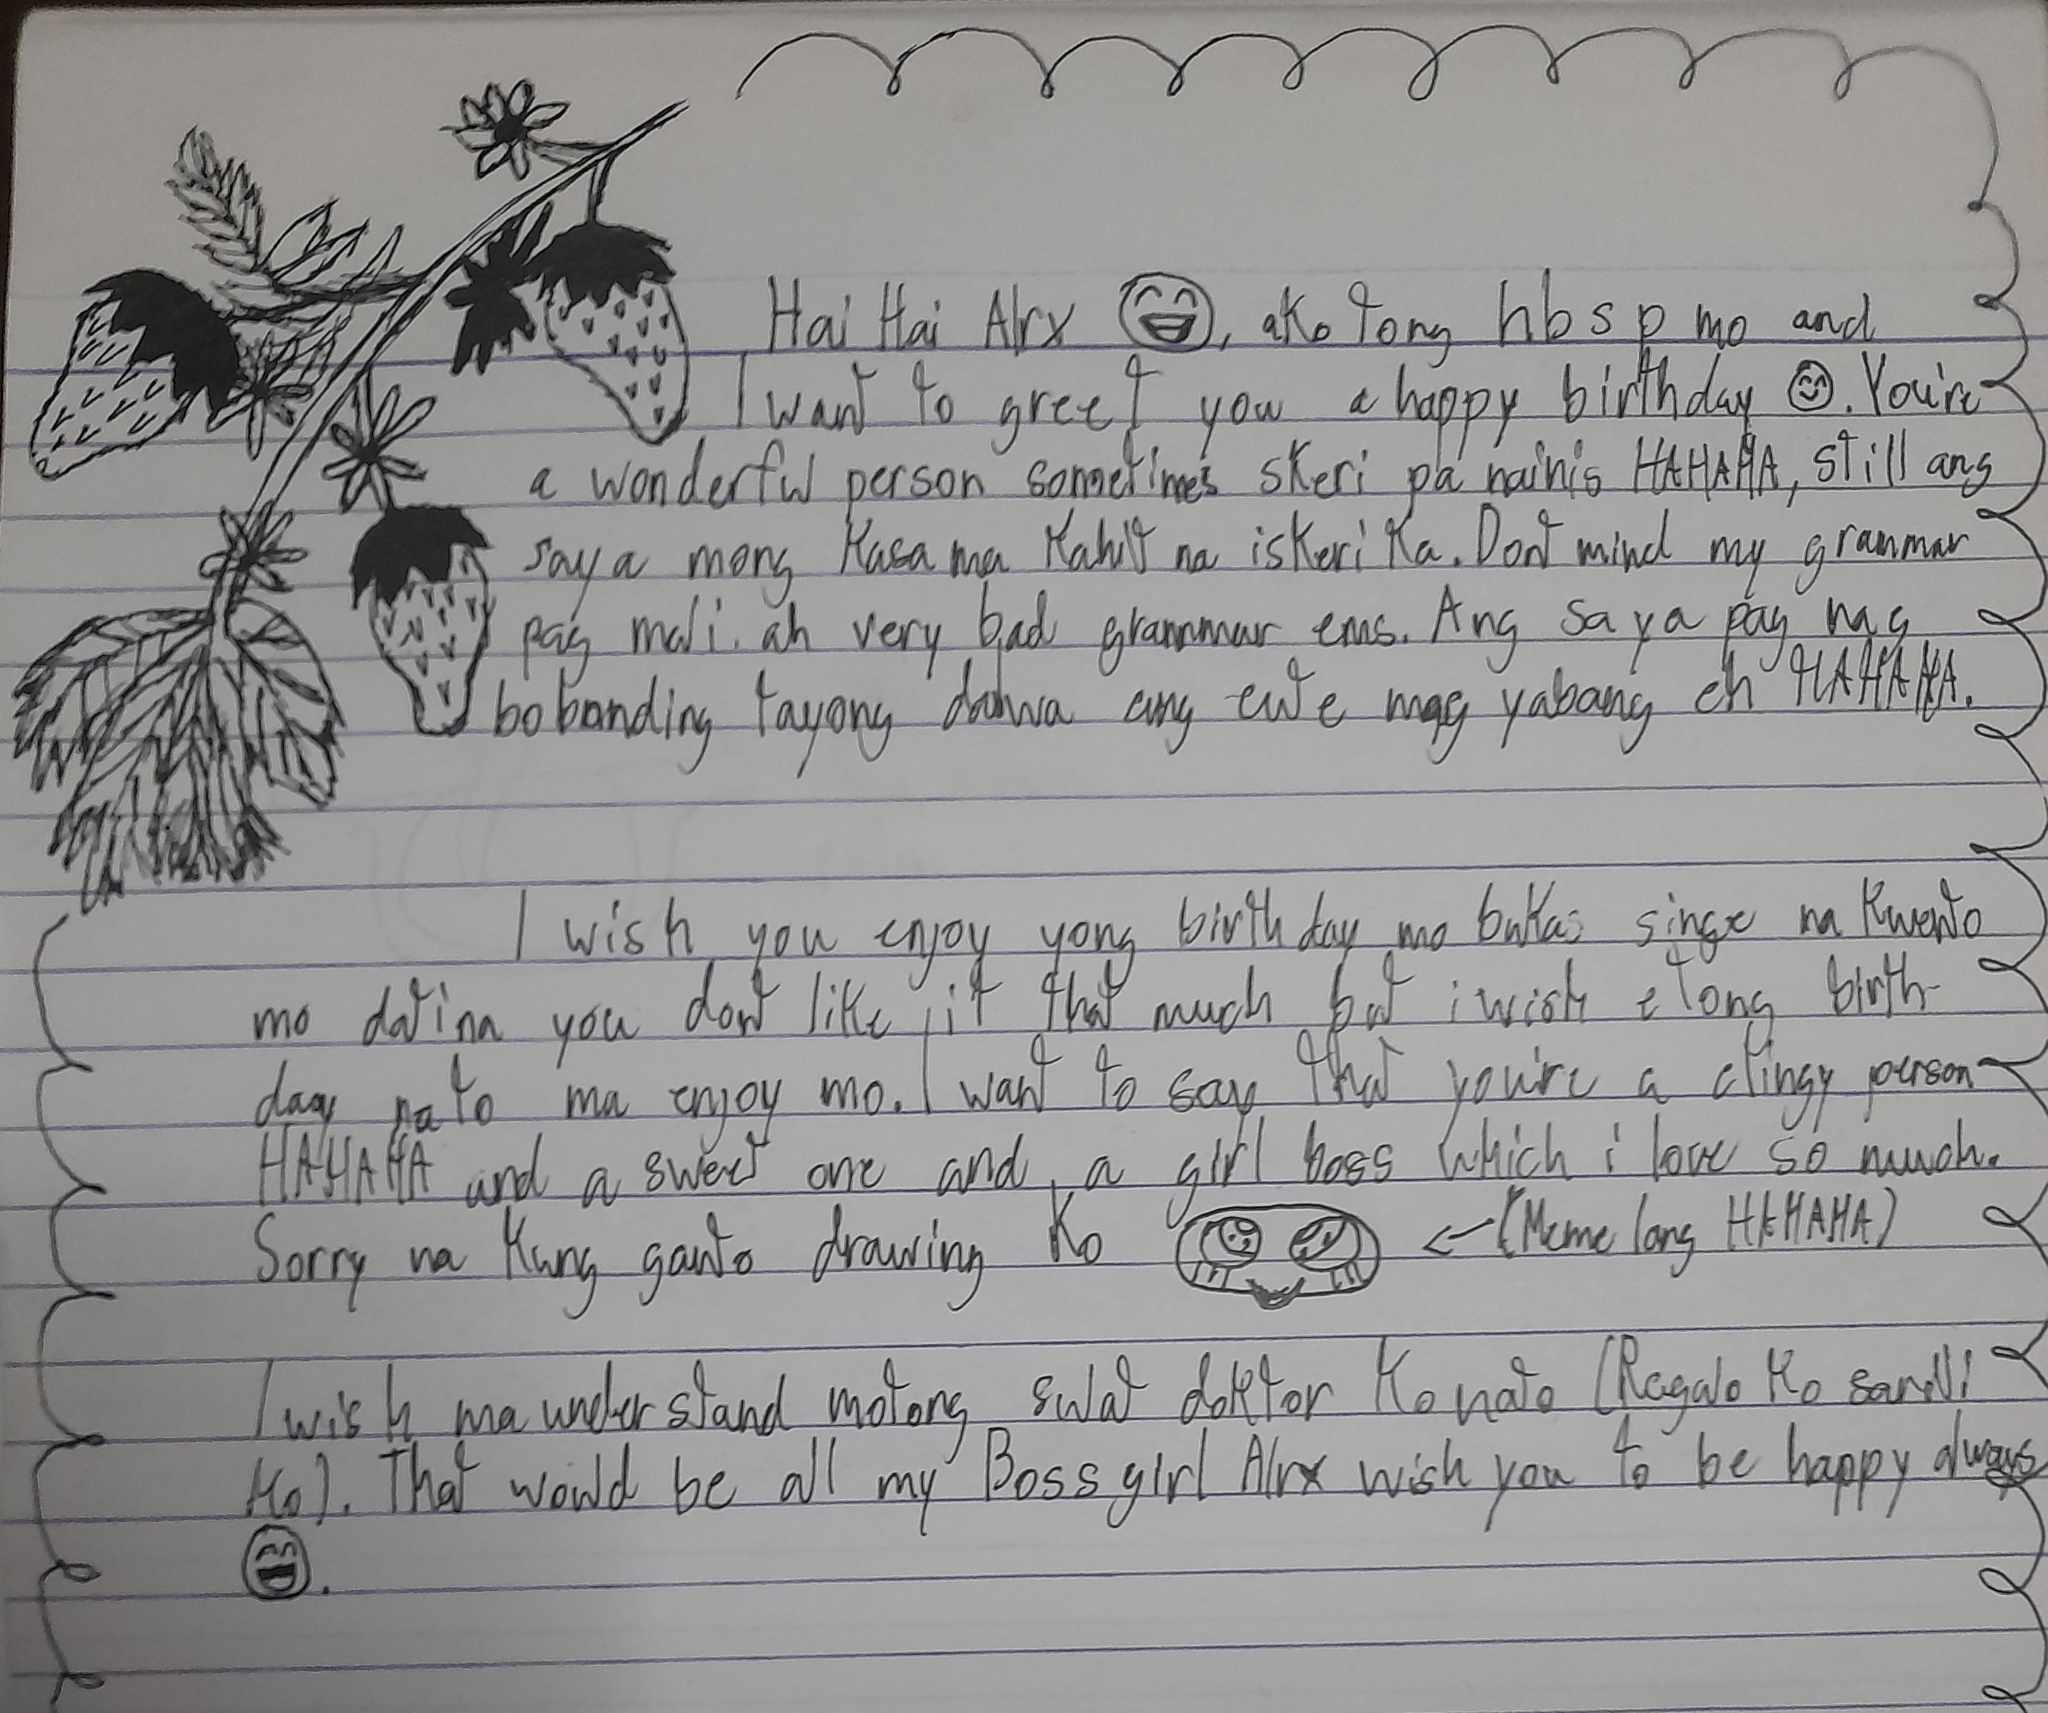 Hai Hai Alrx 😄, ako tong hbsp mo and
I want to greet you a happy birthday 😊. You're
a wonderful person sometimes skeri pa nainis HAHAHA, still ang
saya mong kasama kahit na iskeri ka. Dont mind my grammar
pag mali. ah very bad grammar ems. Ang saya pag nag
bobonding tayong dalwa ang cute mag yabang eh HAHAHA.
I wish you enjoy yong birthday mo bukas singe na kwento
mo datina you dont like it that much but i wish etong birth-
day nato ma enjoy mo. I want to say that you're a clingy person
HAHAHA and a sweet one and a girl boss which i love so much.
Sorry na kung ganto drawing ko ← (Meme lang HAHAHA)
I wish ma understand motong sulat doktor ko nato (Regalo ko sarili
ko). That would be all my Boss girl Alrx wish you to be happy always
😄.